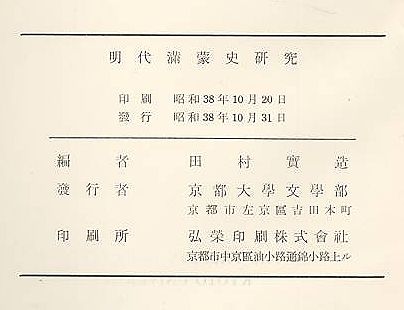 明代滿蒙史研究
印刷 昭和38年10月20日
發行 昭和38年10月31日
編者 田村實造
發行者 京都大學文學部
京都市左京區吉田本町
印刷所 弘榮印刷株式會社
京都市中京區油小路通錦小路上ル